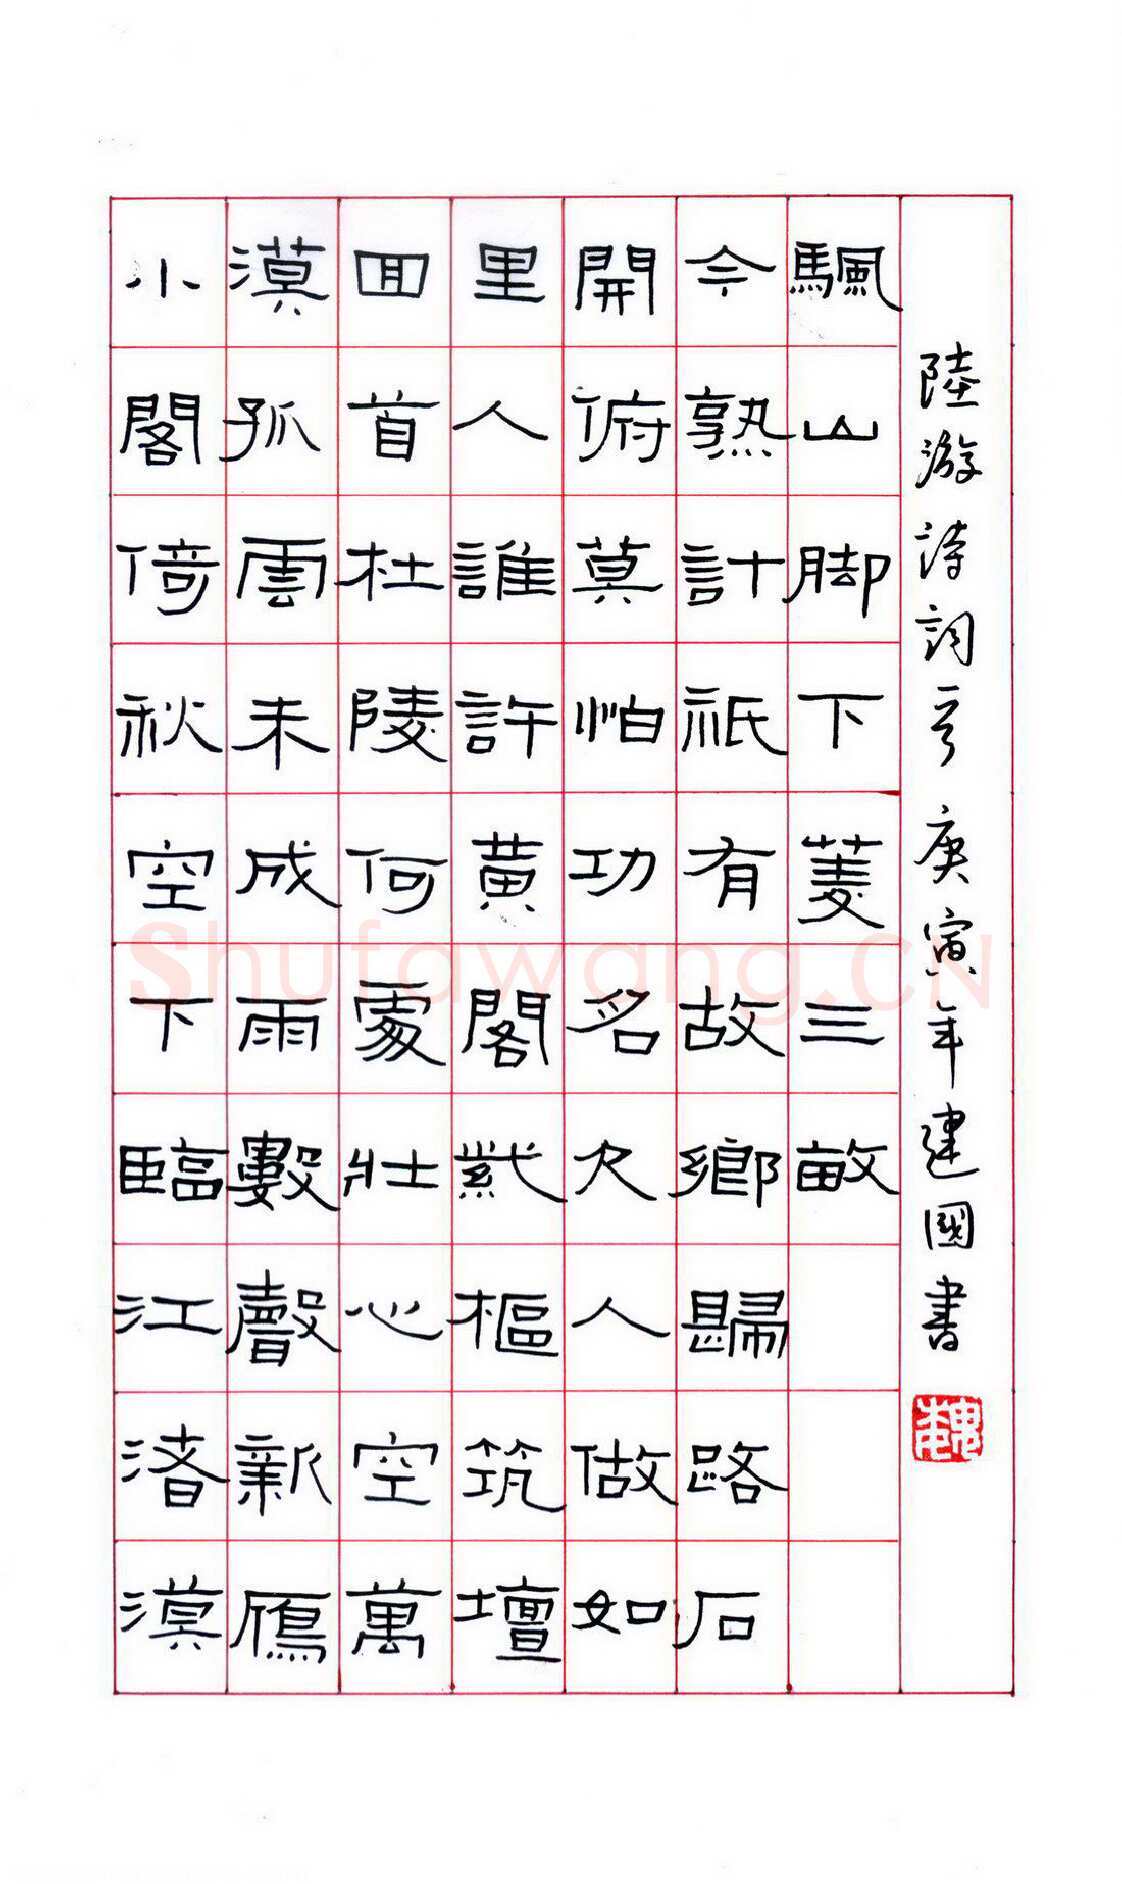 小閣倚秋空下臨江渚漠
漠孤雲未成雨數聲新鴈
回首杜陵何處壯心空萬
里人誰許黃閣紫樞筑壇
開俯莫怕功名欠人做如
今熟計祇有故鄉歸路石
颿山脚下菱三畝
陸游詩詞一首 庚寅年建國書
Shufawang.CN